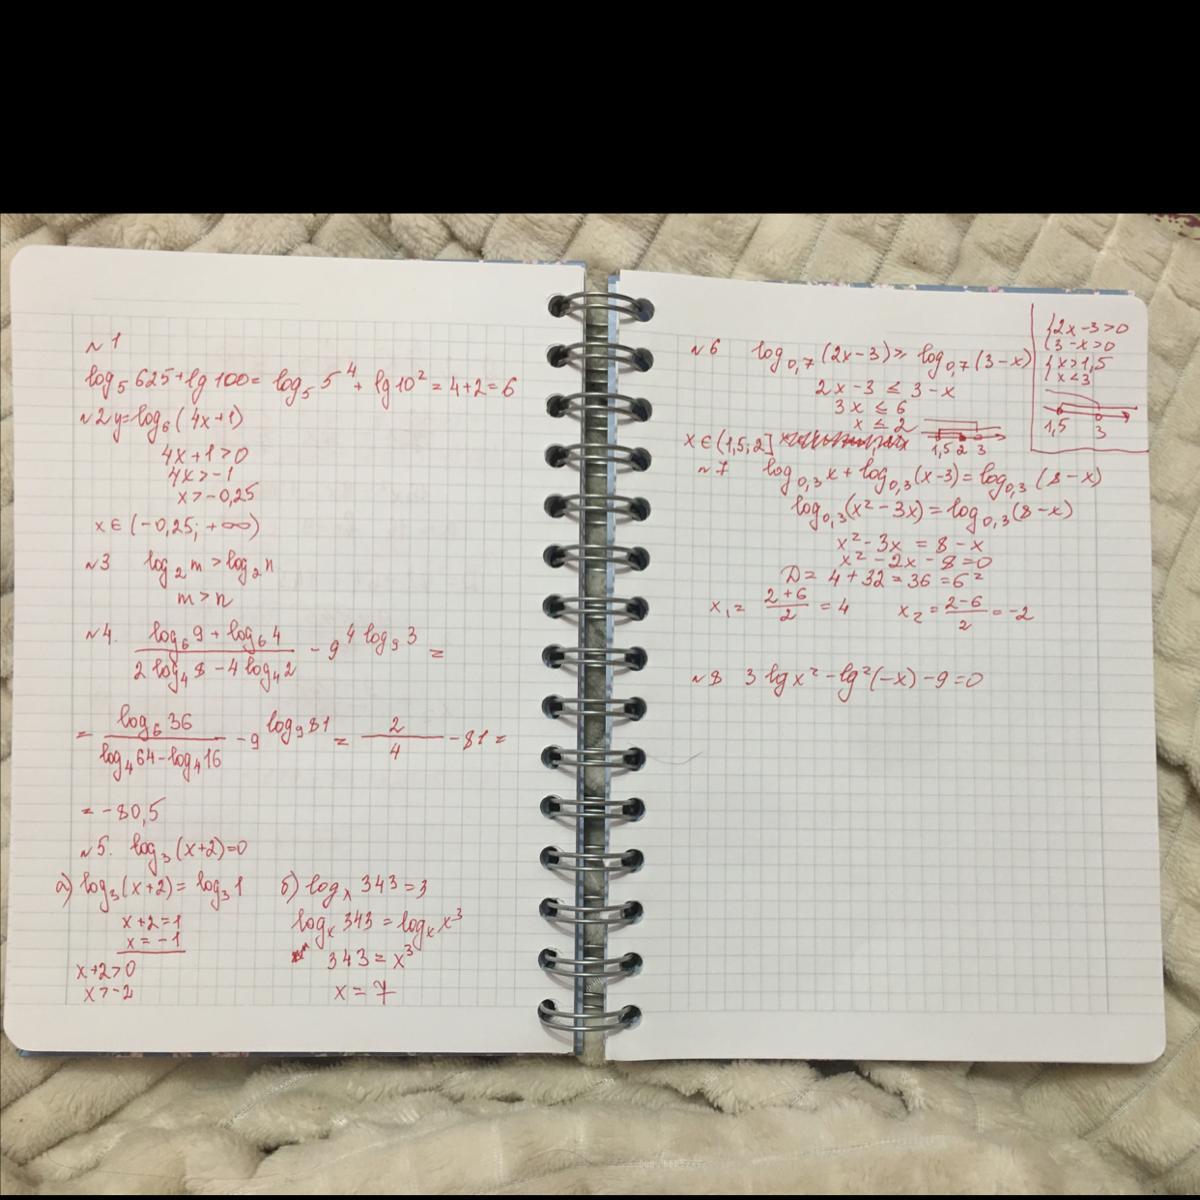 №1
log₅625+lg100= log₅5⁴+lg10²=4+2=6
№2 y=log₆(4x+1)
4x+1>0
4x>-1
x>-0,25
x∈(-0,25; +∞)
№3 log₂m>log₂n
m>n
№4. (log₆9+log₆4)/(2log₄8-4log₄2) - 9^(4log₉3) =
= (log₆36)/(log₄64-log₄16) - 9^(log₉81) = 2/4 - 81 =
= -80,5
№5. log₃(x+2)=0
а) log₃(x+2)= log₃1
x+2=1
x=-1
x+2>0
x>-2
б) logₓ343=3
logₓ343=logₓx³
343=x³
x=7
№6 log₀,₇(2x-3)≥log₀,₇(3-x)
2x-3≤3-x
3x≤6
x≤2
1,5 2 3
x∈(1,5; 2]
{2x-3>0
{3-x>0
{x>1,5
{x<3
1,5 3
№7 log₀,₃x+log₀,₃(x-3)=log₀,₃(8-x)
log₀,₃(x²-3x)=log₀,₃(8-x)
x²-3x=8-x
x²-2x-8=0
D=4+32=36=6²
x₁= (2+6)/2 =4 x₂= (2-6)/2 =-2
№8 3lgx²-lg²(-x)-9=0